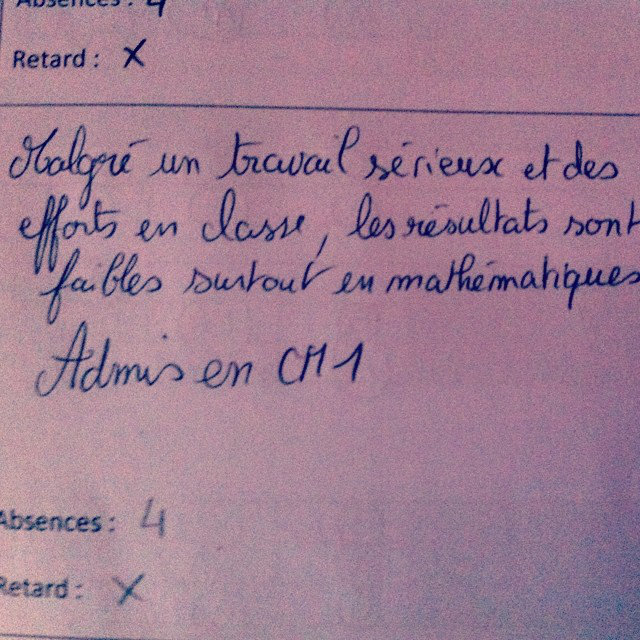 Absences : 4
Retard : X
Malgré un travail sérieux et des
efforts en classe, les résultats sont
faibles surtout en mathématiques
Admis en CM1
Absences : 4
Retard : X